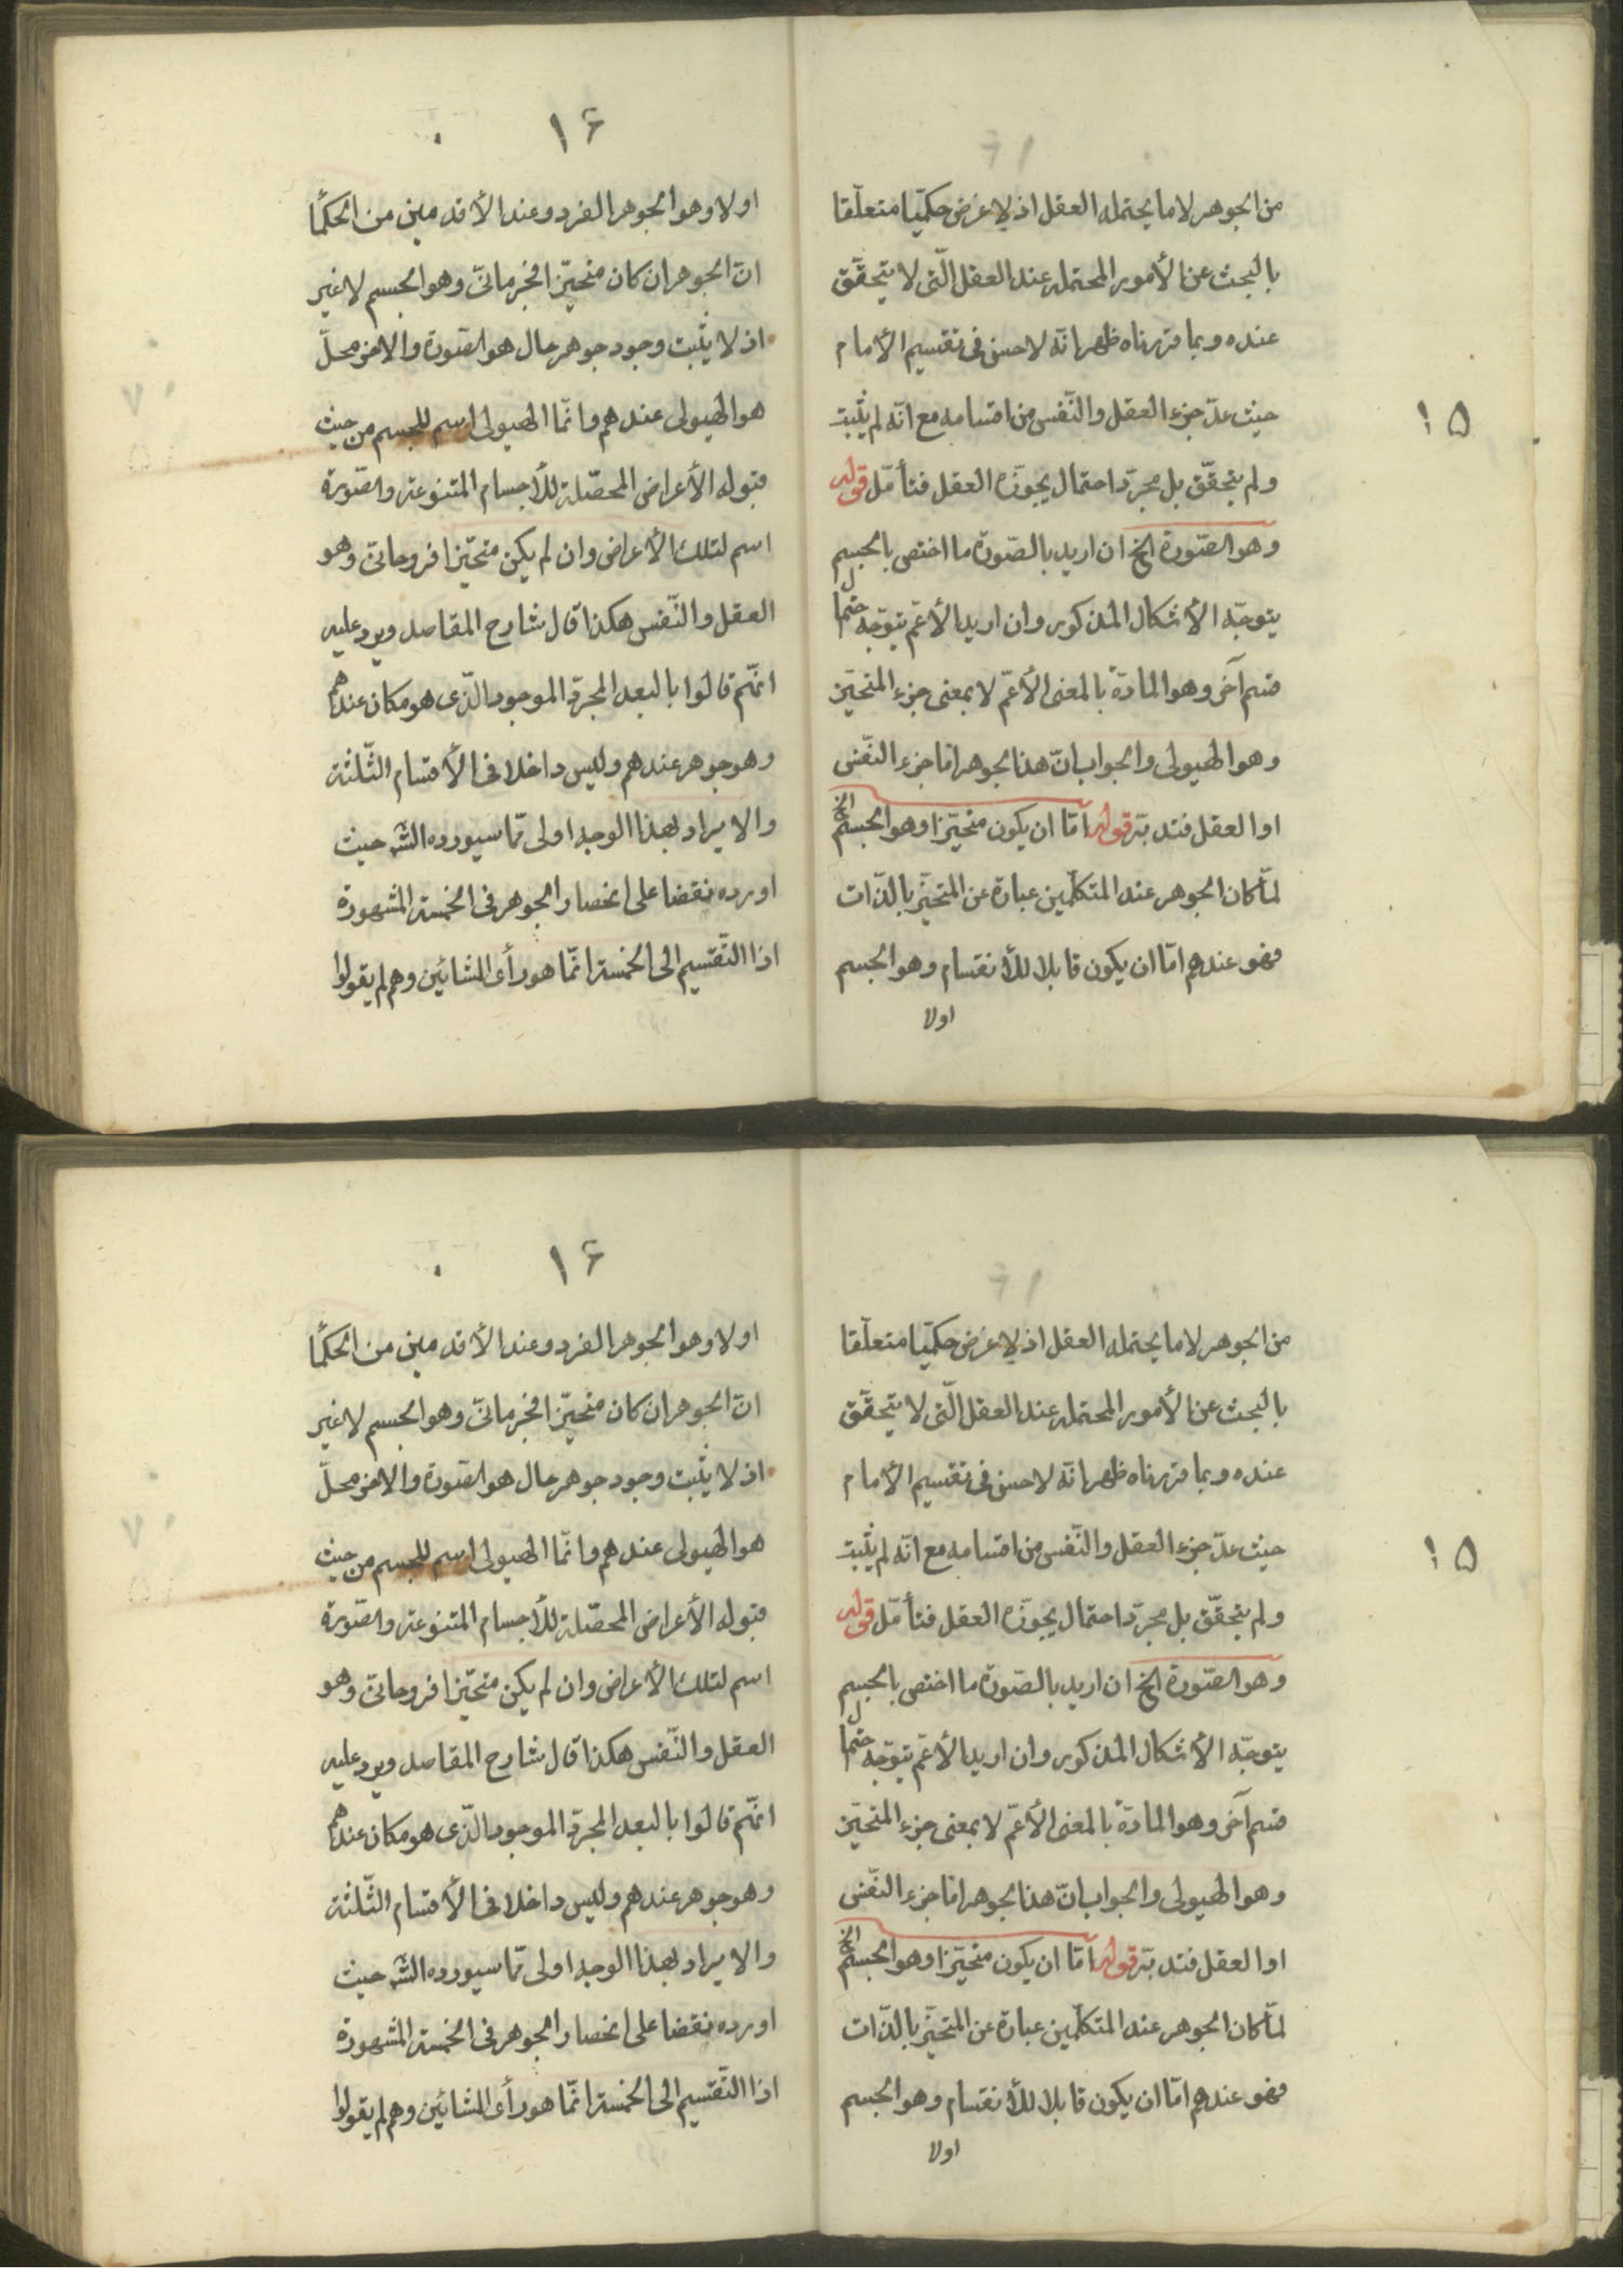 ١٥
من الجوهر لا ما يحتمله العقل اذ لا غرض حكميّا متعلّقا
بالبحث عن الأمور المحتمله عند العقل الّتى لا يتحقّق
عنده وبما قررناه ظهر انّه لا حسن فى تقسيم الأمام
حيث عدّ جزء العقل والنّفس من اقسامه مع انّه لم يثبت
ولم يتحقّق بل مجرّد احتمال يجوّزه العقل فتأمّل قوله
وهو الصّورة الخ ان اريد بالصّورة ما اختص بالجسم
يتوجّه الأشكال المذكور وان اريد الأعمّ يتوجّه
قسم آخر وهو المادّة بالمعنى الأعمّ لا بمعنى جزء المتحيّز
وهو الهيولى والجواب انّ هذا الجوهر امّا جزء النّفس
او العقل فتدبّر قوله امّا ان يكون متحيّزا وهو الجسم الخ
لمّا كان الجوهر عند المتكلّمين عبارة عن المتحيّز بالذّات
فهو عندهم امّا ان يكون قابلا للأنقسام وهو الجسم
اولا
١۶
اولا وهو الجوهر الفرد وعند الأقدمين من الحكمأ
انّ الجوهر ان كان متحيّزا فجرمانىّ وهو الجسم لا غير
اذ لا يثبت وجود جوهر حال هو الصّورة والاخر محلّ
هو الهيولى عندهم وانّما الهيولى اسم للجسم من حيث
قبوله الأعراض المحصّلة للأجسام المتنوعة والصّورة
اسم لتلك الأعراض وان لم يكن متحيّزا فروحانىّ وهو
العقل والنّفس هكذا قال شارح المقاصد ويرد عليه
انّهم قالوا بالبعد المجرّد الموجود الّذى هو مكان عندهم
وهو جوهر عندهم وليس داخلا فى الأقسام الثّلثة
والايراد بهذا الوجه اولى ممّا سيورده الشّه حيث
اورده نقضا على انحصار الجوهر فى الخمسة المشهورة
اذا التّقسيم الى الخمسة انّما هو رأى المشائين وهم لم يقولوا
١٥
من الجوهر لا ما يحتمله العقل اذ لا غرض حكميّا متعلّقا
بالبحث عن الأمور المحتمله عند العقل الّتى لا يتحقّق
عنده وبما قررناه ظهر انّه لا حسن فى تقسيم الأمام
حيث عدّ جزء العقل والنّفس من اقسامه مع انّه لم يثبت
ولم يتحقّق بل مجرّد احتمال يجوّزه العقل فتأمّل قوله
وهو الصّورة الخ ان اريد بالصّورة ما اختص بالجسم
يتوجّه الأشكال المذكور وان اريد الأعمّ يتوجّه
قسم آخر وهو المادّة بالمعنى الأعمّ لا بمعنى جزء المتحيّز
وهو الهيولى والجواب انّ هذا الجوهر امّا جزء النّفس
او العقل فتدبّر قوله امّا ان يكون متحيّزا وهو الجسم الخ
لمّا كان الجوهر عند المتكلّمين عبارة عن المتحيّز بالذّات
فهو عندهم امّا ان يكون قابلا للأنقسام وهو الجسم
اولا
١۶
اولا وهو الجوهر الفرد وعند الأقدمين من الحكمأ
انّ الجوهر ان كان متحيّزا فجرمانىّ وهو الجسم لا غير
اذ لا يثبت وجود جوهر حال هو الصّورة والاخر محلّ
هو الهيولى عندهم وانّما الهيولى اسم للجسم من حيث
قبوله الأعراض المحصّلة للأجسام المتنوعة والصّورة
اسم لتلك الأعراض وان لم يكن متحيّزا فروحانىّ وهو
العقل والنّفس هكذا قال شارح المقاصد ويرد عليه
انّهم قالوا بالبعد المجرّد الموجود الّذى هو مكان عندهم
وهو جوهر عندهم وليس داخلا فى الأقسام الثّلثة
والايراد بهذا الوجه اولى ممّا سيورده الشّه حيث
اورده نقضا على انحصار الجوهر فى الخمسة المشهورة
اذا التّقسيم الى الخمسة انّما هو رأى المشائين وهم لم يقولوا